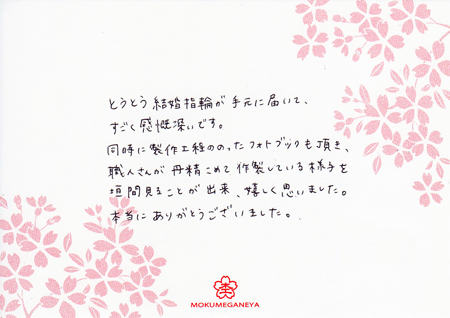 とうとう結婚指輪が手元に届いて、
すごく感慨深いです。
同時に製作工程ののったフォトブックも頂き、
職人さんが丹精こめて作製している様子を
垣間見ることが出来、嬉しく思いました。
本当にありがとうございました。
MOKUMEGANEYA